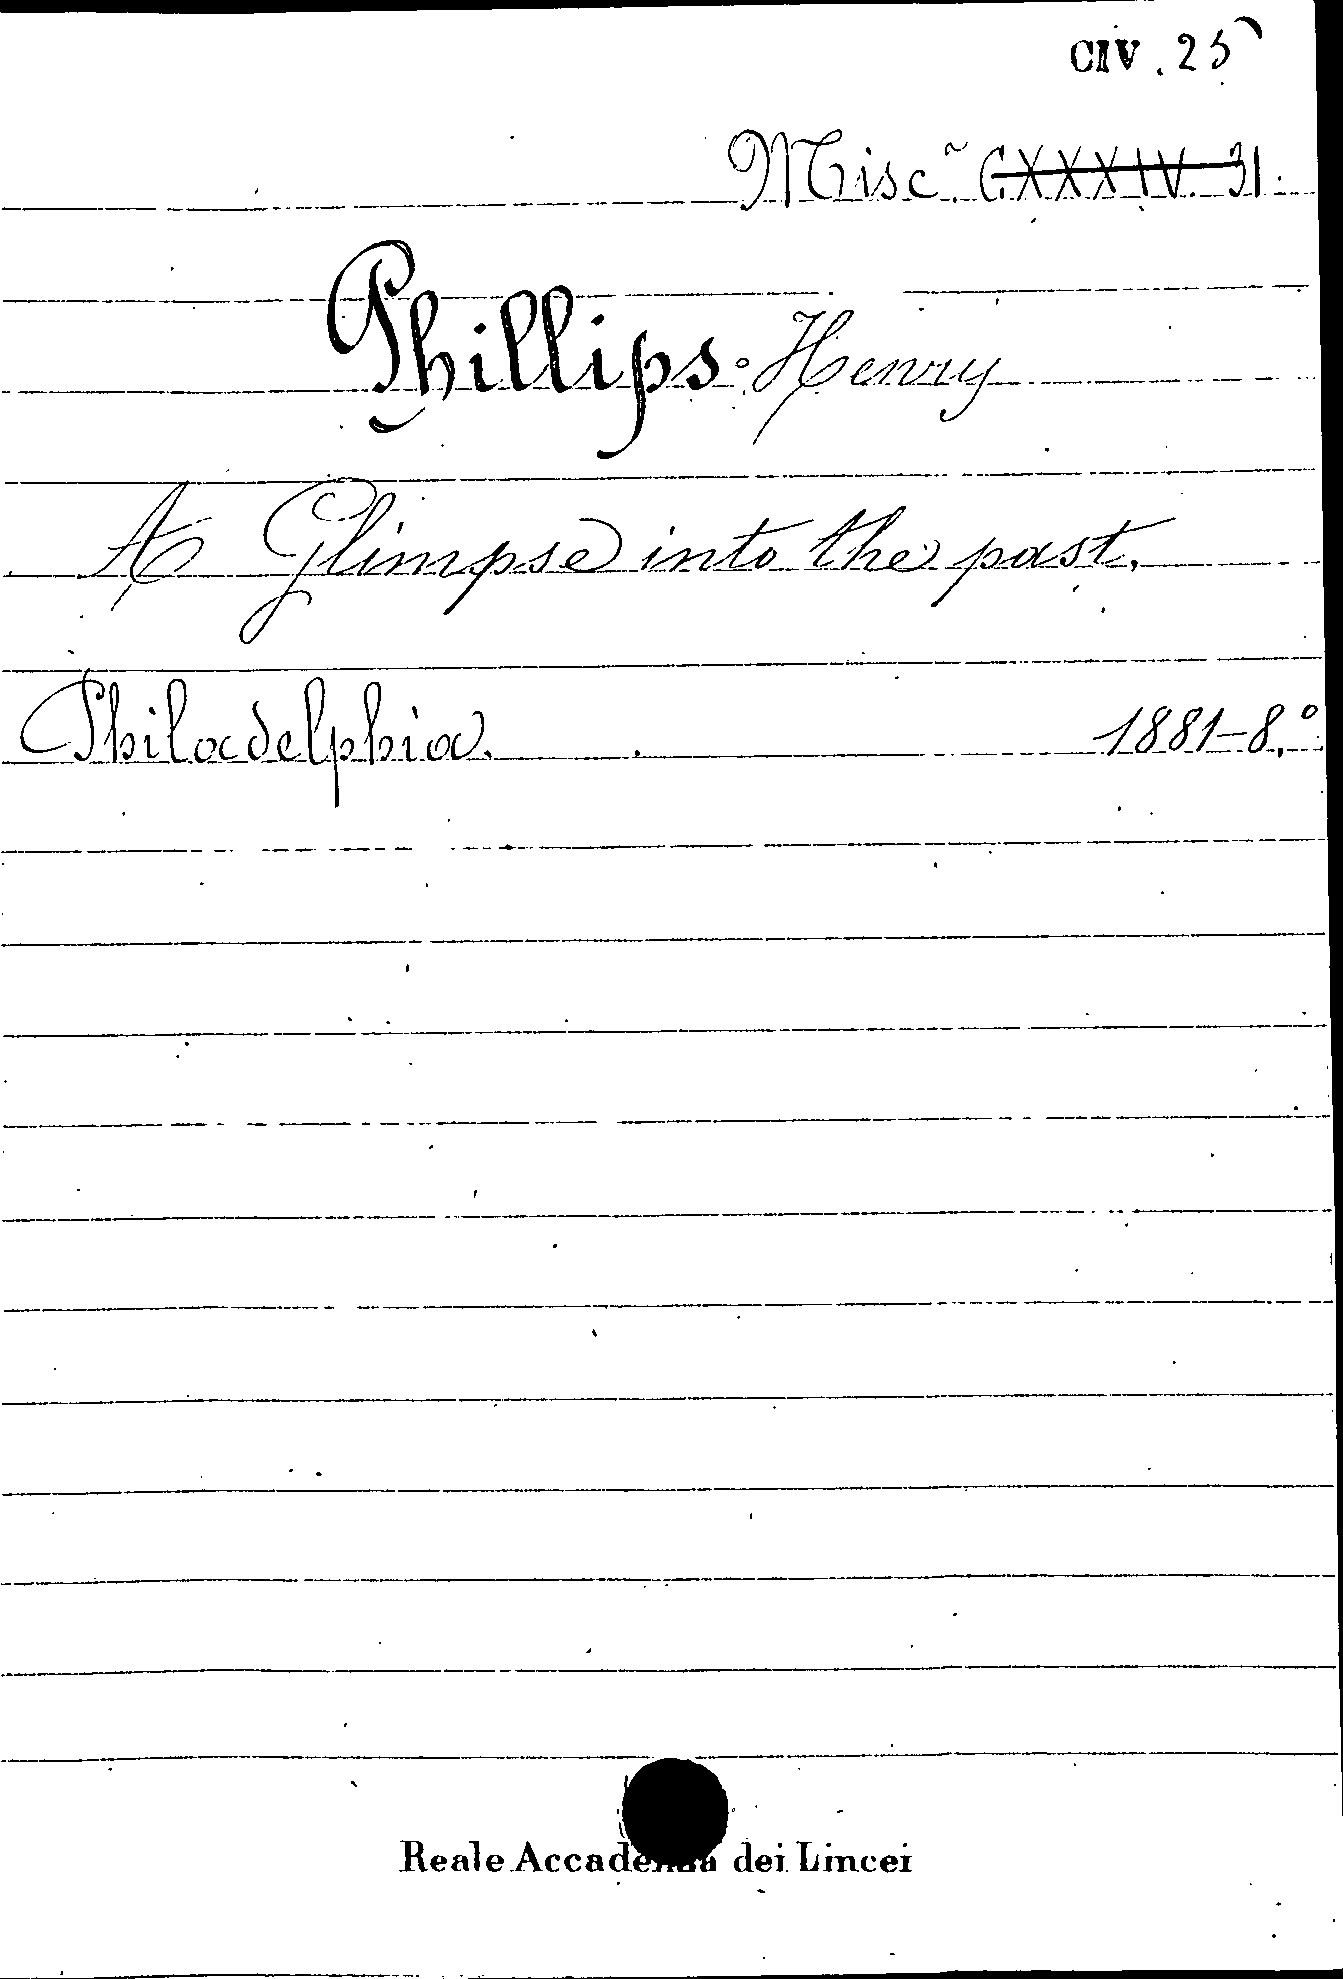 CIV. 25
Misc.ª CXXXIV. 31.
Phillips. Henry
A Glimpse into the past.
Philadelphia. 1881-8.º
Reale Accademia dei Lincei